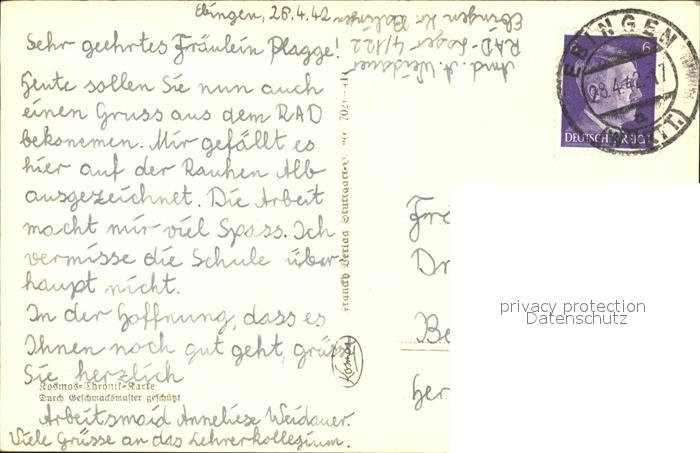 Ebingen, 28.4.42
Sehr geehrtes Fräulein Plagge!
Heute sollen Sie nun auch
einen Gruss aus dem RAD
bekommen. Mir gefällt es
hier auf der Rauhen Alb
ausgezeichnet. Die Arbeit
macht mir viel Spass. Ich
vermisse die Schule über-
haupt nicht.
In der Hoffnung, dass es
Ihnen noch gut geht, grüsst
Sie herzlich
Kosmos-Chronik-Karte
Durch Geschmacksmuster geschützt
Arbeitsmaid Anneliese Weidauer.
Viele Grüsse an das Lehrerkollegium.
A. Weidauer
RAD-Lager 4/122
Ebingen Kr. Balingen
Franckh Verlag Stuttgart
Kosmos
EBINGEN
28.4.42
6
DEUTSCHES REICH
privacy protection
Datenschutz
Be